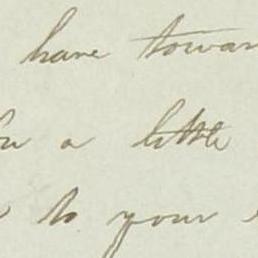 have towar
a little
to your